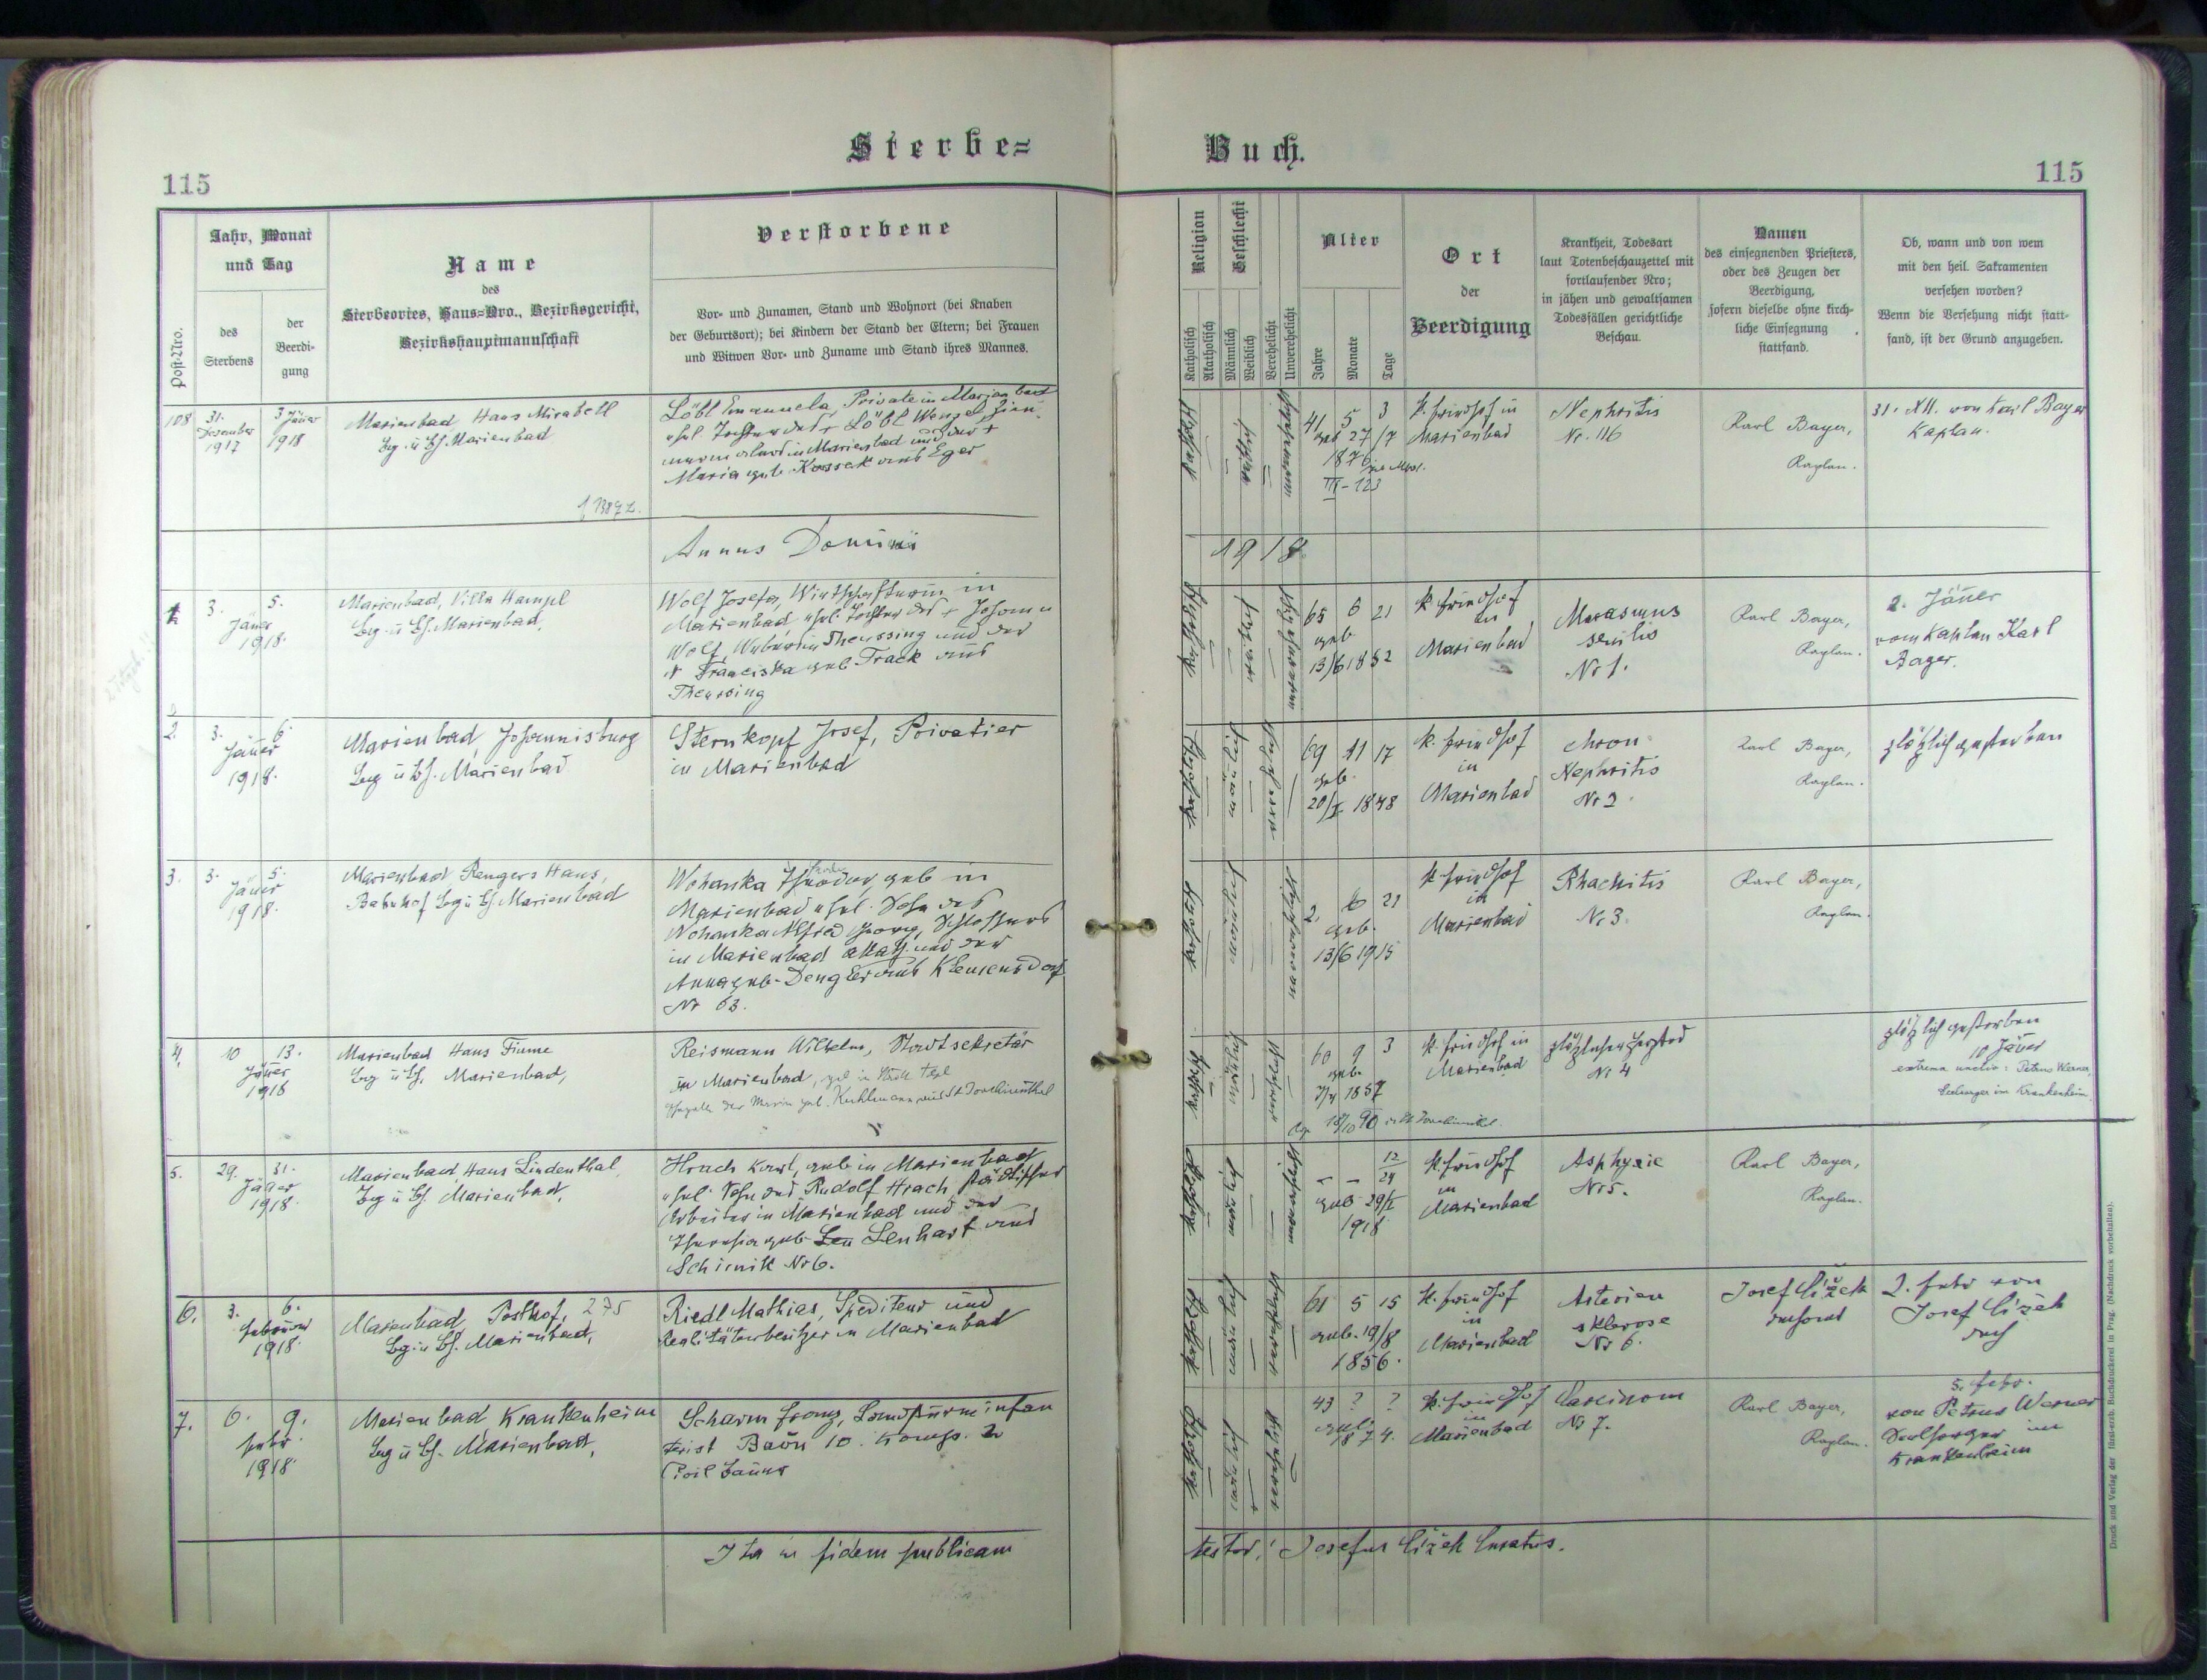 Sterbe=
Buch.
115
115
Jahr, Monat
und Tag
Post-Nro.
des
Sterbens
der
Beerdi-
gung
Name
des
Sterbeortes, Haus=Nro., Bezirksgericht,
Bezirkshauptmannschaft
Verstorbene
Vor- und Zunamen, Stand und Wohnort (bei Knaben
der Geburtsort); bei Kindern der Stand der Eltern; bei Frauen
und Witwen Vor- und Zuname und Stand ihres Mannes.
Religion
Katholisch
Akatholisch
Geschlecht
Männlich
Weiblich
Verehelicht
Unverehelicht
Alter
Jahre
Monate
Tage
Ort
der
Beerdigung
Krankheit, Todesart
laut Totenbeschauzettel mit
fortlaufender Nro;
in jähen und gewaltsamen
Todesfällen gerichtliche
Beschau.
Namen
des einsegnenden Priesters,
oder des Zeugen der
Beerdigung,
sofern dieselbe ohne kirch-
liche Einsegnung
stattfand.
Ob, wann und von wem
mit den heil. Sakramenten
versehen worden?
Wenn die Versehung nicht statt-
fand, ist der Grund anzugeben.
108
31.
Dezember
1917
3 Jäner
1918
Marienbad, Haus Mirabell
Bzg. u Bh. Marienbad
Löbl Emanuela, Private in Marienbad
ehel. Tochter des + Löbl Wenzel
in Marienbad und der +
Maria geb. Kossek aus Eger
katholisch
weiblich
unverehelicht
41 5 3
geb 27/7
1876
III-123
k. Friedhof in
Marienbad
Nephritis
Nr. 116
Karl Bayer,
Kaplan.
31. XII. von Karl Bayer
Kaplan.
Annus Domini
1918
1
3. 5.
Jäner
1918.
Marienbad, Villa Hampl
Bzg. u Bh. Marienbad,
Wolf Josefa, Wirtschafterin in
Marienbad, ehel. Tochter des + Johann
Wolf, Weber in Theussing und der
+ Franciska geb. Track aus
Theussing
katholisch
weiblich
unverehelicht
65 6 21
geb
13/6 1852
k. Friedhof
in
Marienbad
Marasmus
senilis
Nr 1.
Karl Bayer,
Kaplan.
2. Jäner
vom Kaplan Karl
Bayer.
2.
3. 6
Jäner
1918.
Marienbad, Johannisburg
Bzg u Bh. Marienbad
Sternkopf Josef, Privatier
in Marienbad
katholisch
männlich
69 11 17
geb.
20/I 1848
k. Friedhof
in
Marienbad
chron
Nephritis
Nr 2.
Karl Bayer,
Kaplan.
plötzlich gestorben
3.
3. 5.
Jäner
1918.
Marienbad, Rengers Haus,
Bahnhof Bzg u Bh Marienbad
Wohanka Theodor, geb in
Marienbad ehel. Sohn des
Wohanka Alfred Georg, Schlossers
in Marienbad akath. und der
Anna geb. Dengler aus Klemensdorf
Nr 63.
katholisch
männlich
unverehelicht
2. 6 21
geb.
13/6 1915
k. Friedhof
in
Marienbad
Rhachitis
Nr 3.
Karl Bayer,
Kaplan.
4.
10 13.
Jäner
1918
Marienbad Haus Fiume
Bzg u Bh. Marienbad,
Reismann Wilhelm, Stadtsekretär
in Marienbad, geb in Stadt Tepl
der Maria geb. Kuhlmann aus St Joachimsthal
männlich
60 9 3
geb.
1857
k. Friedhof in
Marienbad
plötzlicher Herztod
Nr 4
plötzlich gestorben
10 Jäner
extrema unctio: Petrus Werner,
Seelsorger im Krankenheim.
5.
29. 31.
Jäner
1918.
Marienbad, Haus Lindenthal
Bzg u Bh. Marienbad,
Hrach Karl, geb in Marienbad
ehel. Sohn des Rudolf Hrach städtischer
Arbeiter in Marienbad und der
Theresia geb. Len Lenhart aus
Schirnik Nr 6.
katholisch
männlich
unverehelicht
- - 12/24
geb. 29/I
1918
k. Friedhof
in
Marienbad
Asphyxie
Nr 5.
Karl Bayer,
Kaplan.
6.
3. 6.
Februar
1918.
Marienbad, Posthof, 275
Bzg. u Bh. Marienbad,
Riedl Mathias, Spediteur und
Realitätenbesitzer in Marienbad
katholisch
männlich
61 5 15
geb. 19/8
1856.
k. Friedhof
in
Marienbad
Arterien
sklerose
Nr 6.
Josef Čížek
2. Febr von
Josef Čížek
7.
6. 9.
Febr.
1918.
Marienbad Krankenheim
Bzg u Bh. Marienbad,
Scharm Franz, Landsturminfan
terist Baon 10. Komp. 2
katholisch
43 ? ?
geb.
1874.
k. Friedhof
in
Marienbad
Carcinom
Nr 7.
Karl Bayer,
Kaplan.
5. Febr.
von Petrus Werner
Seelsorger im
Krankenheim
Ita in fidem publicam
testor: Josefus Čížek Curatus.
Druck und Verlag der fürst-erzb. Buchdruckerei in Prag. (Nachdruck vorbehalten).